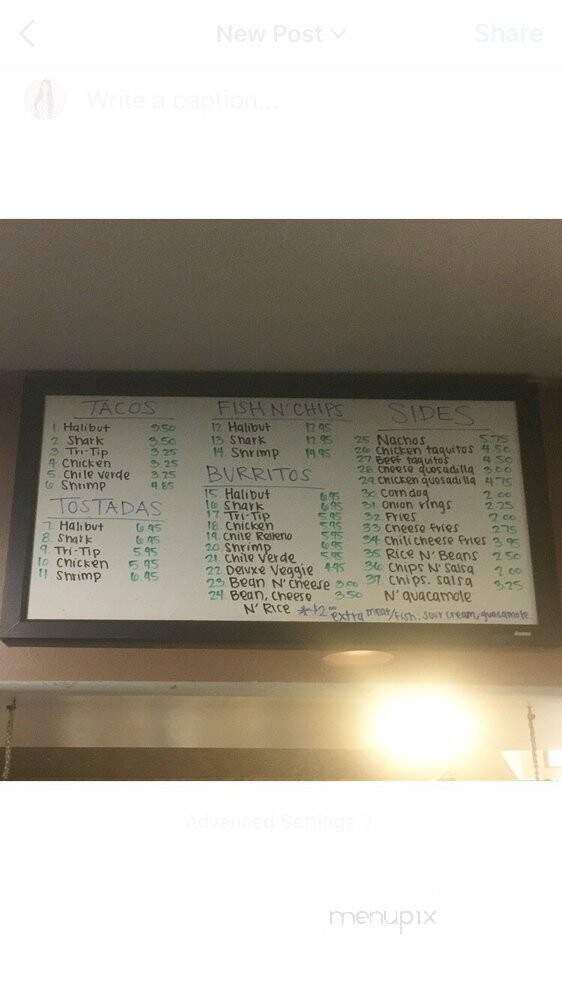 New Post
Share
Write a caption...
TACOS
1. Halibut 3.50
2 Shark 3.50
3 Tri-Tip 3.25
4. Chicken 3.25
5 Chile Verde 3.25
6 Shrimp 4.85
TOSTADAS
7 Halibut 6.95
8 Shark 6.95
9. Tri-Tip 5.95
10 Chicken 5.95
11 Shrimp 6.95
FISH N' CHIPS
12 Halibut 12.95
13 Shark 12.95
14 Shrimp 14.95
BURRITOS
15 Halibut 6.95
16 Shark 6.95
17 Tri-Tip 5.95
18. Chicken 5.95
19. Chile Relleno 5.95
20. Shrimp 6.95
21. Chile Verde 5.95
22 Deluxe Veggie 4.95
23 Bean N' Cheese 3.00
24 Bean, Cheese 3.50
N' Rice
SIDES
25 Nachos 5.75
26 Chicken taquitos 4.50
27 Beef taquitos 4.50
28 Cheese quesadilla 3.00
29 Chicken quesadilla 4.75
30 Corndog 2.00
31 Onion rings 2.25
32 Fries 2.00
33 Cheese fries 2.75
34 Chili cheese fries 3.95
35 Rice N' Beans 2.50
36 Chips N' Salsa 2.00
37 Chips. salsa 3.25
N' guacamole
*+$2.00 extra meat/fish, sour cream, guacamole
Advanced Settings
menupix